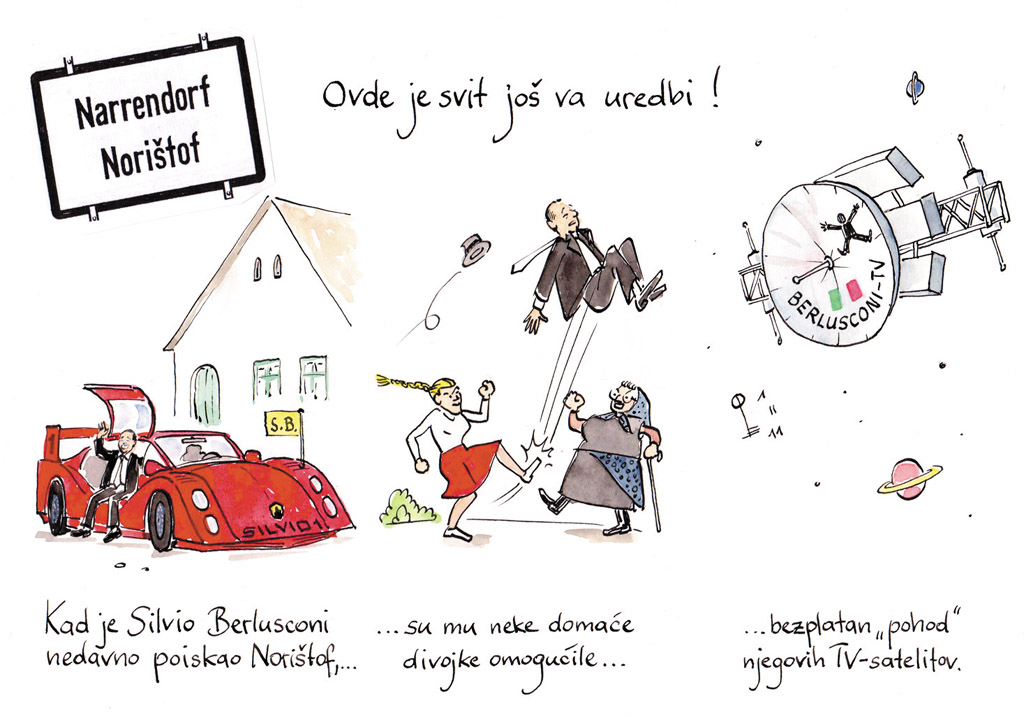 Narrendorf
Norištof
Ovde je svit još va uredbi !
S.B.
1
SILVIO 1
BERLUSCONI-TV
Kad je Silvio Berlusconi
nedavno poiskao Norištof,...
...su mu neke domaće
divojke omogućile...
...bezplatan „pohod“
njegovih TV-satelitov.